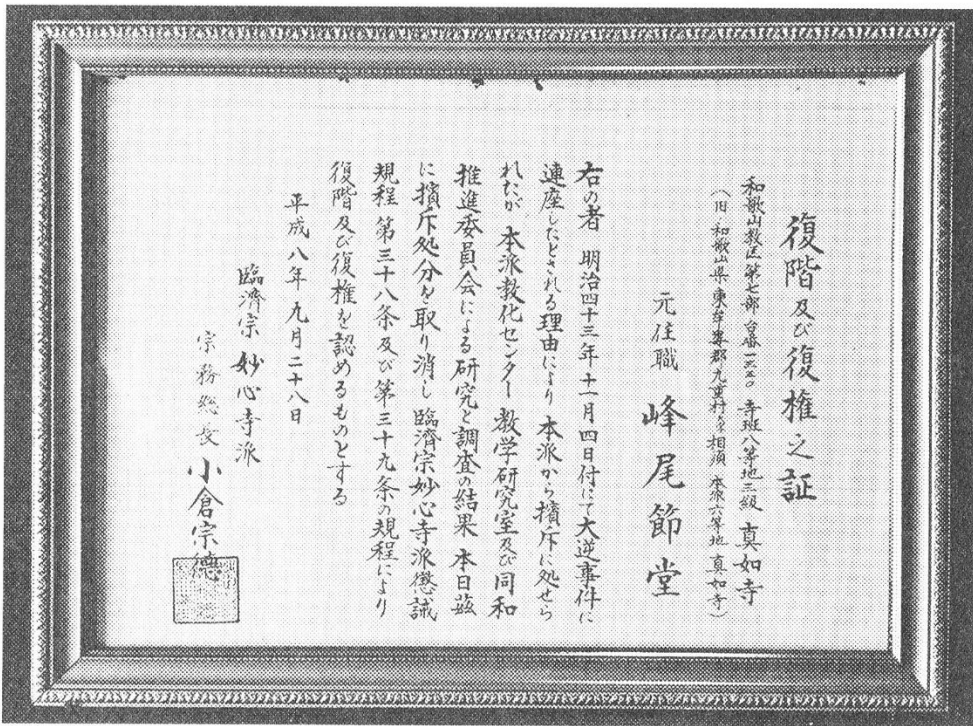 復階及び復権之証
和歌山教区第七部 台番一三五〇 寺班八等地三級 真如寺
(旧・和歌山県東牟婁郡九重村 相須 本派六等地 真如寺)
元住職 峰尾節堂
右の者 明治四十三年十一月四日付にて大逆事件に
連座したとされる理由により 本派から擯斥に処せら
れたが 本派教化センター教学研究室及び同和
推進委員会による研究と調査の結果 本日茲
に擯斥処分を取り消し 臨済宗妙心寺派懲誡
規程 第三十八条及び第三十九条の規程により
復階及び復権を認めるものとする
平成八年九月二十八日
臨濟宗 妙心寺派
宗務総長 小倉宗徳